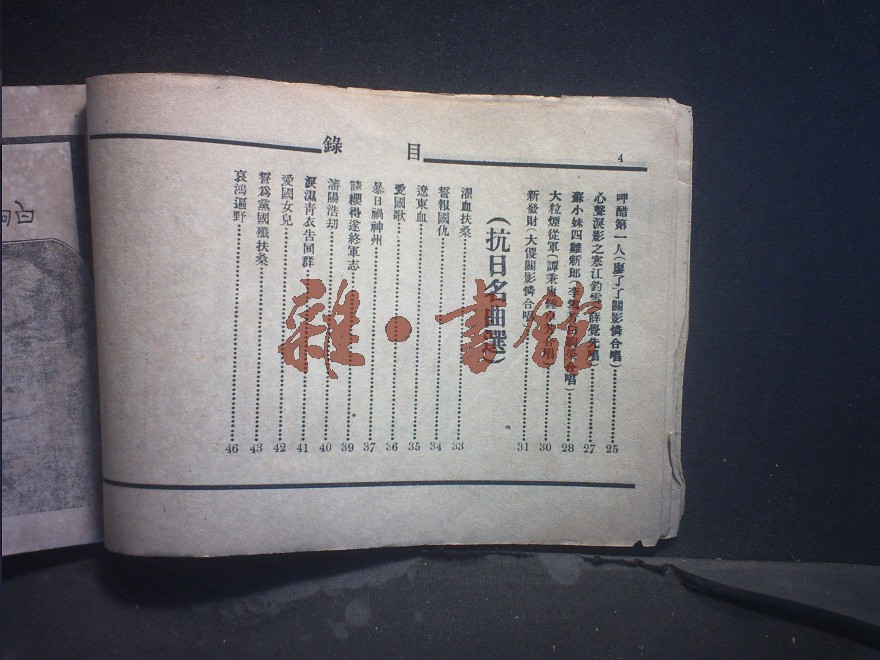 目錄
4
呷醋第一人(廖了了關影憐合唱)……25
心聲淚影之寒江釣雪(薛覺先唱)……27
蘇小妹四難新郎(李 合唱)……28
大粒煙從軍(譚秉 合唱)……30
新發財(大傻關影憐合唱)……31
(抗日名曲選)
濺血扶桑……33
誓報國仇……34
遼東血……35
愛國歌……36
暴日禍神州……37
請纓得遂終軍志……39
瀋陽浩劫……40
淚濕青衣告同群……41
愛國女兒……42
誓爲黨國殲扶桑……43
哀鴻遍野……46
雜·書館